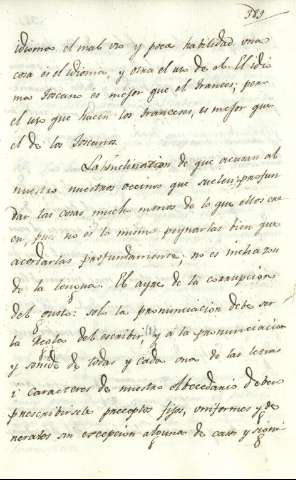 389
idioma el mal uso y poca habilidad una
cosa es el idioma, y otra el uso de el. El idio
ma Toscano es mejor que el frances; pero
el uso que hacen los franceses, es mejor que
el de los Toscanos.
La inclinacion de que acusan al
nuestro nuestros vecinos que suelen profun
dar las cosas mucho menos de lo que ellos cre
en, pues no es lo mismo pensarlas bien que
acordarlas profundamente, no es inchazon
de la lengua. El ayre de la corrupcion
del gusto: solo la pronunciacion debe ser
la regla del escribir (1) y a la pronunciacion
y sonido de todas y cada una de las letras
i caracteres de nuestro abecedario deben
prescribirsele preceptos fijos, uniformes y ge
nerales sin excepcion alguna de caso y signi